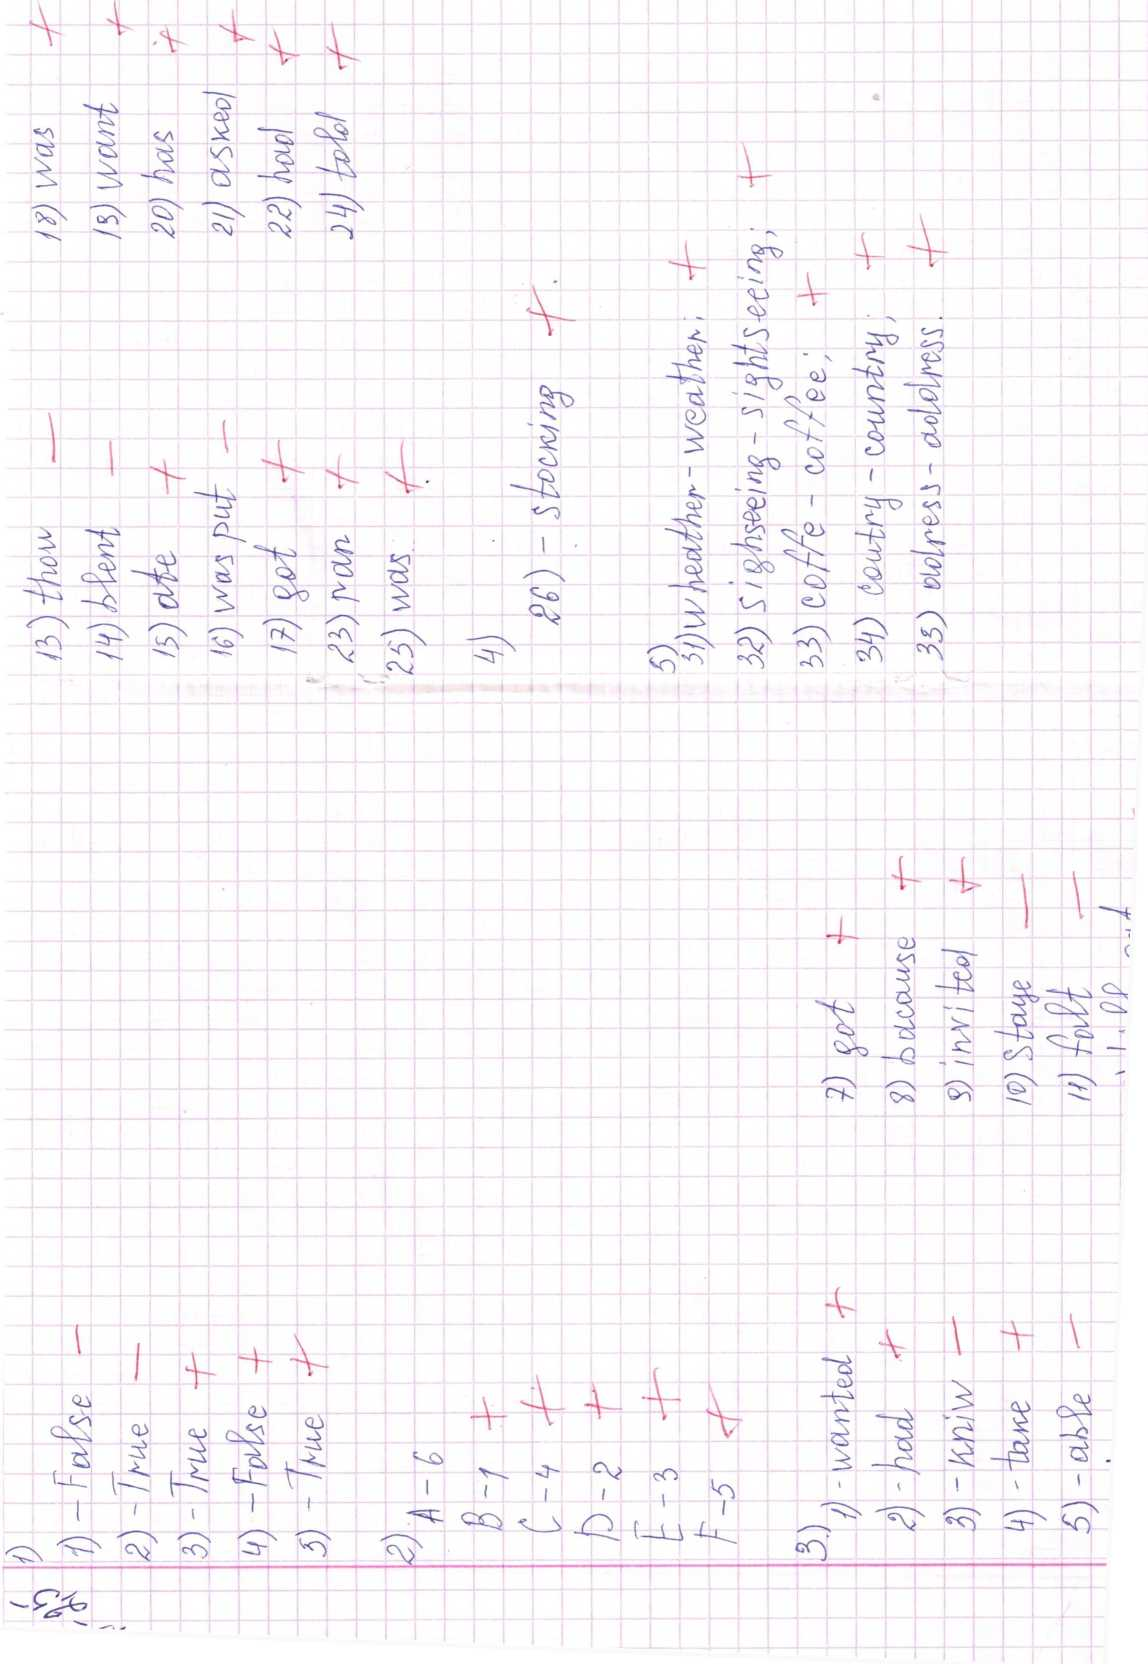 1)
1) - False −
2) - True −
3) - True +
4) - False +
5) - True +
2) A - 6
B - 1 +
C - 4 +
D - 2 +
E - 3 +
F - 5 +
3.)
1) - wanted +
2) - had +
3) - kniw −
4) - take +
5) - able −
7) got +
8) bacause +
9) invited +
10) Staye −
11) falt −
13) thow −
14) blent −
15) ate +
16) was put −
17) got +
23) ran +
25) was +
18) was +
19) want +
20) has +
21) asked +
22) had +
24) told +
4)
26) - stocking +
5)
31) wheather - weather; +
32) sighseeing - sightseeing; +
33) coffe - coffee; +
34) coutry - country; +
35) adress - address. +